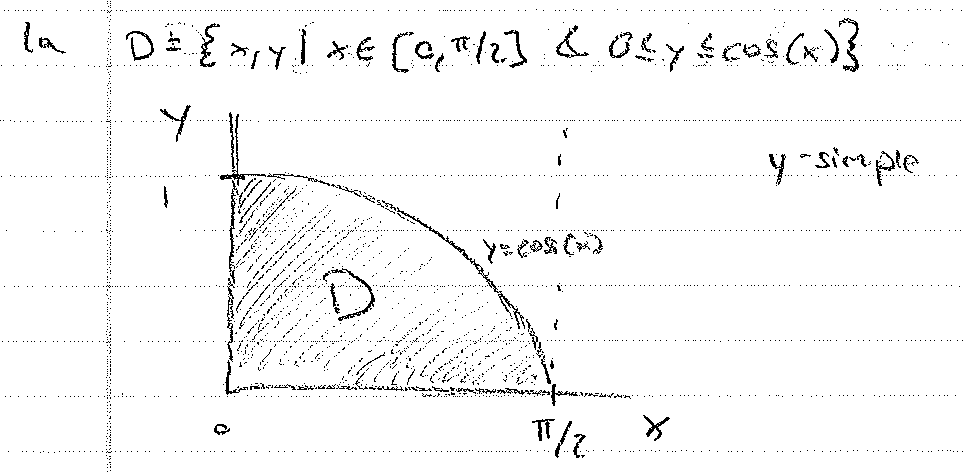 1a D = {x,y | x ∈ [0, π/2] & 0 ≤ y ≤ cos(x)}
y
1
y-simple
y=cos(x)
D
0
π/2
x